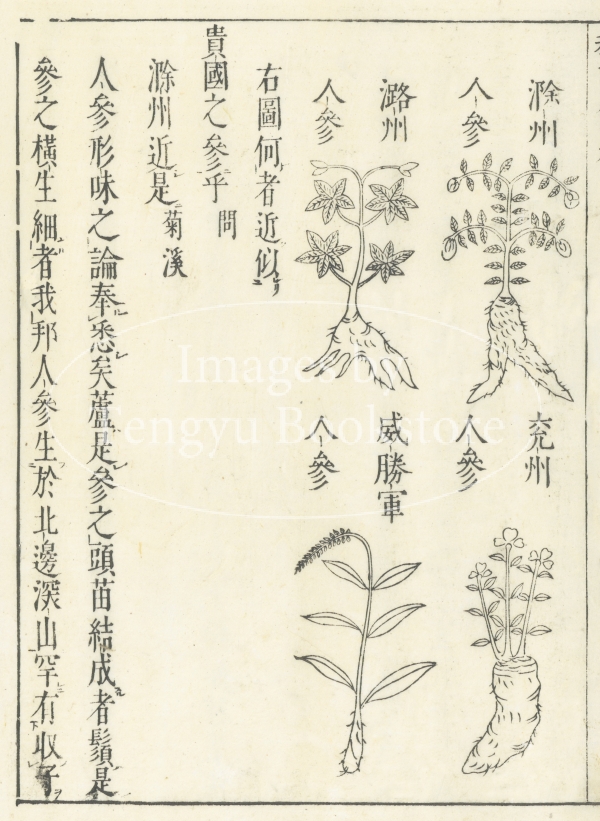 滁州
人參
潞州
人參
兖州
人參
威勝軍
人參
右圖何者近似
貴國之參乎 問
滁州近是 菊溪
人參形味之論奉悉矣蘆是參之頭苗結成者鬚是
參之橫生細者我邦人參生於北邊深山罕有收子
Images by
Tengyu Bookstore